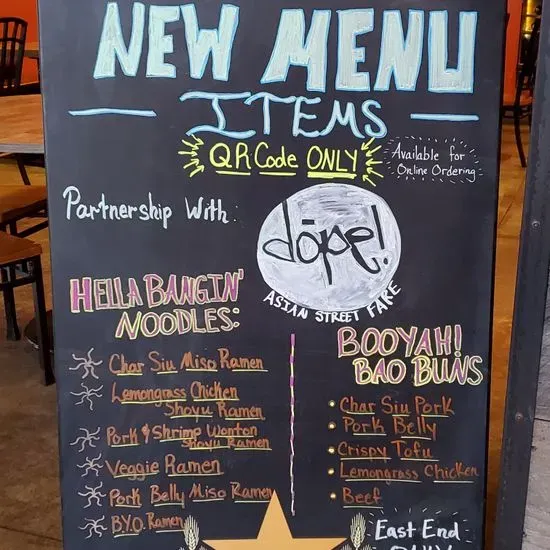 NEW MENU
ITEMS
QR Code ONLY
Available for
Online Ordering
Partnership With:
dōpe!
ASIAN STREET FARE
HELLA BANGIN'
NOODLES:
Char Siu Miso Ramen
Lemongrass Chicken
Shoyu Ramen
Pork & Shrimp Wonton
Shoyu Ramen
Veggie Ramen
Pork Belly Miso Ramen
B.Y.O. Ramen
BOOYAH!
BAO BUNS
Char Siu Pork
Pork Belly
Crispy Tofu
Lemongrass Chicken
Beef
East End